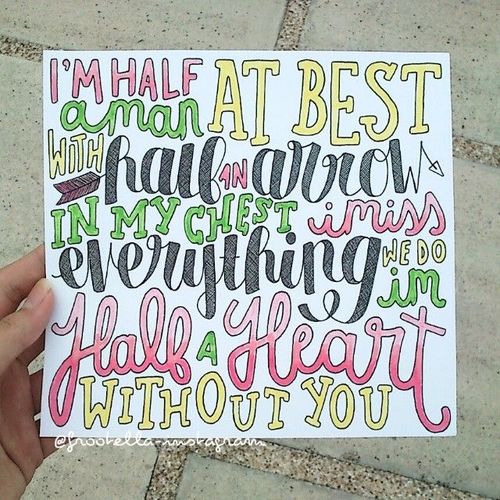 I'M HALF
a man AT BEST
WITH half AN arrow
IN MY CHEST i miss
everything WE DO
im
Half A Heart
WITHOUT YOU
@frootella-instagram